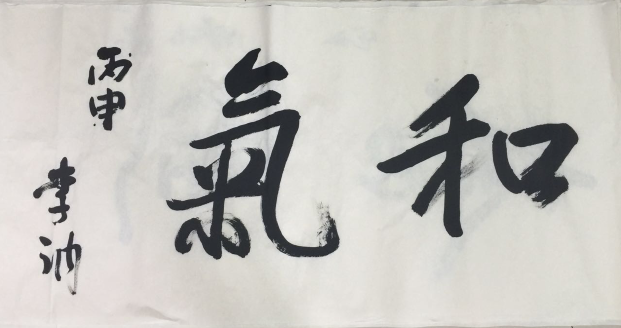 和氣
丙申
李訥